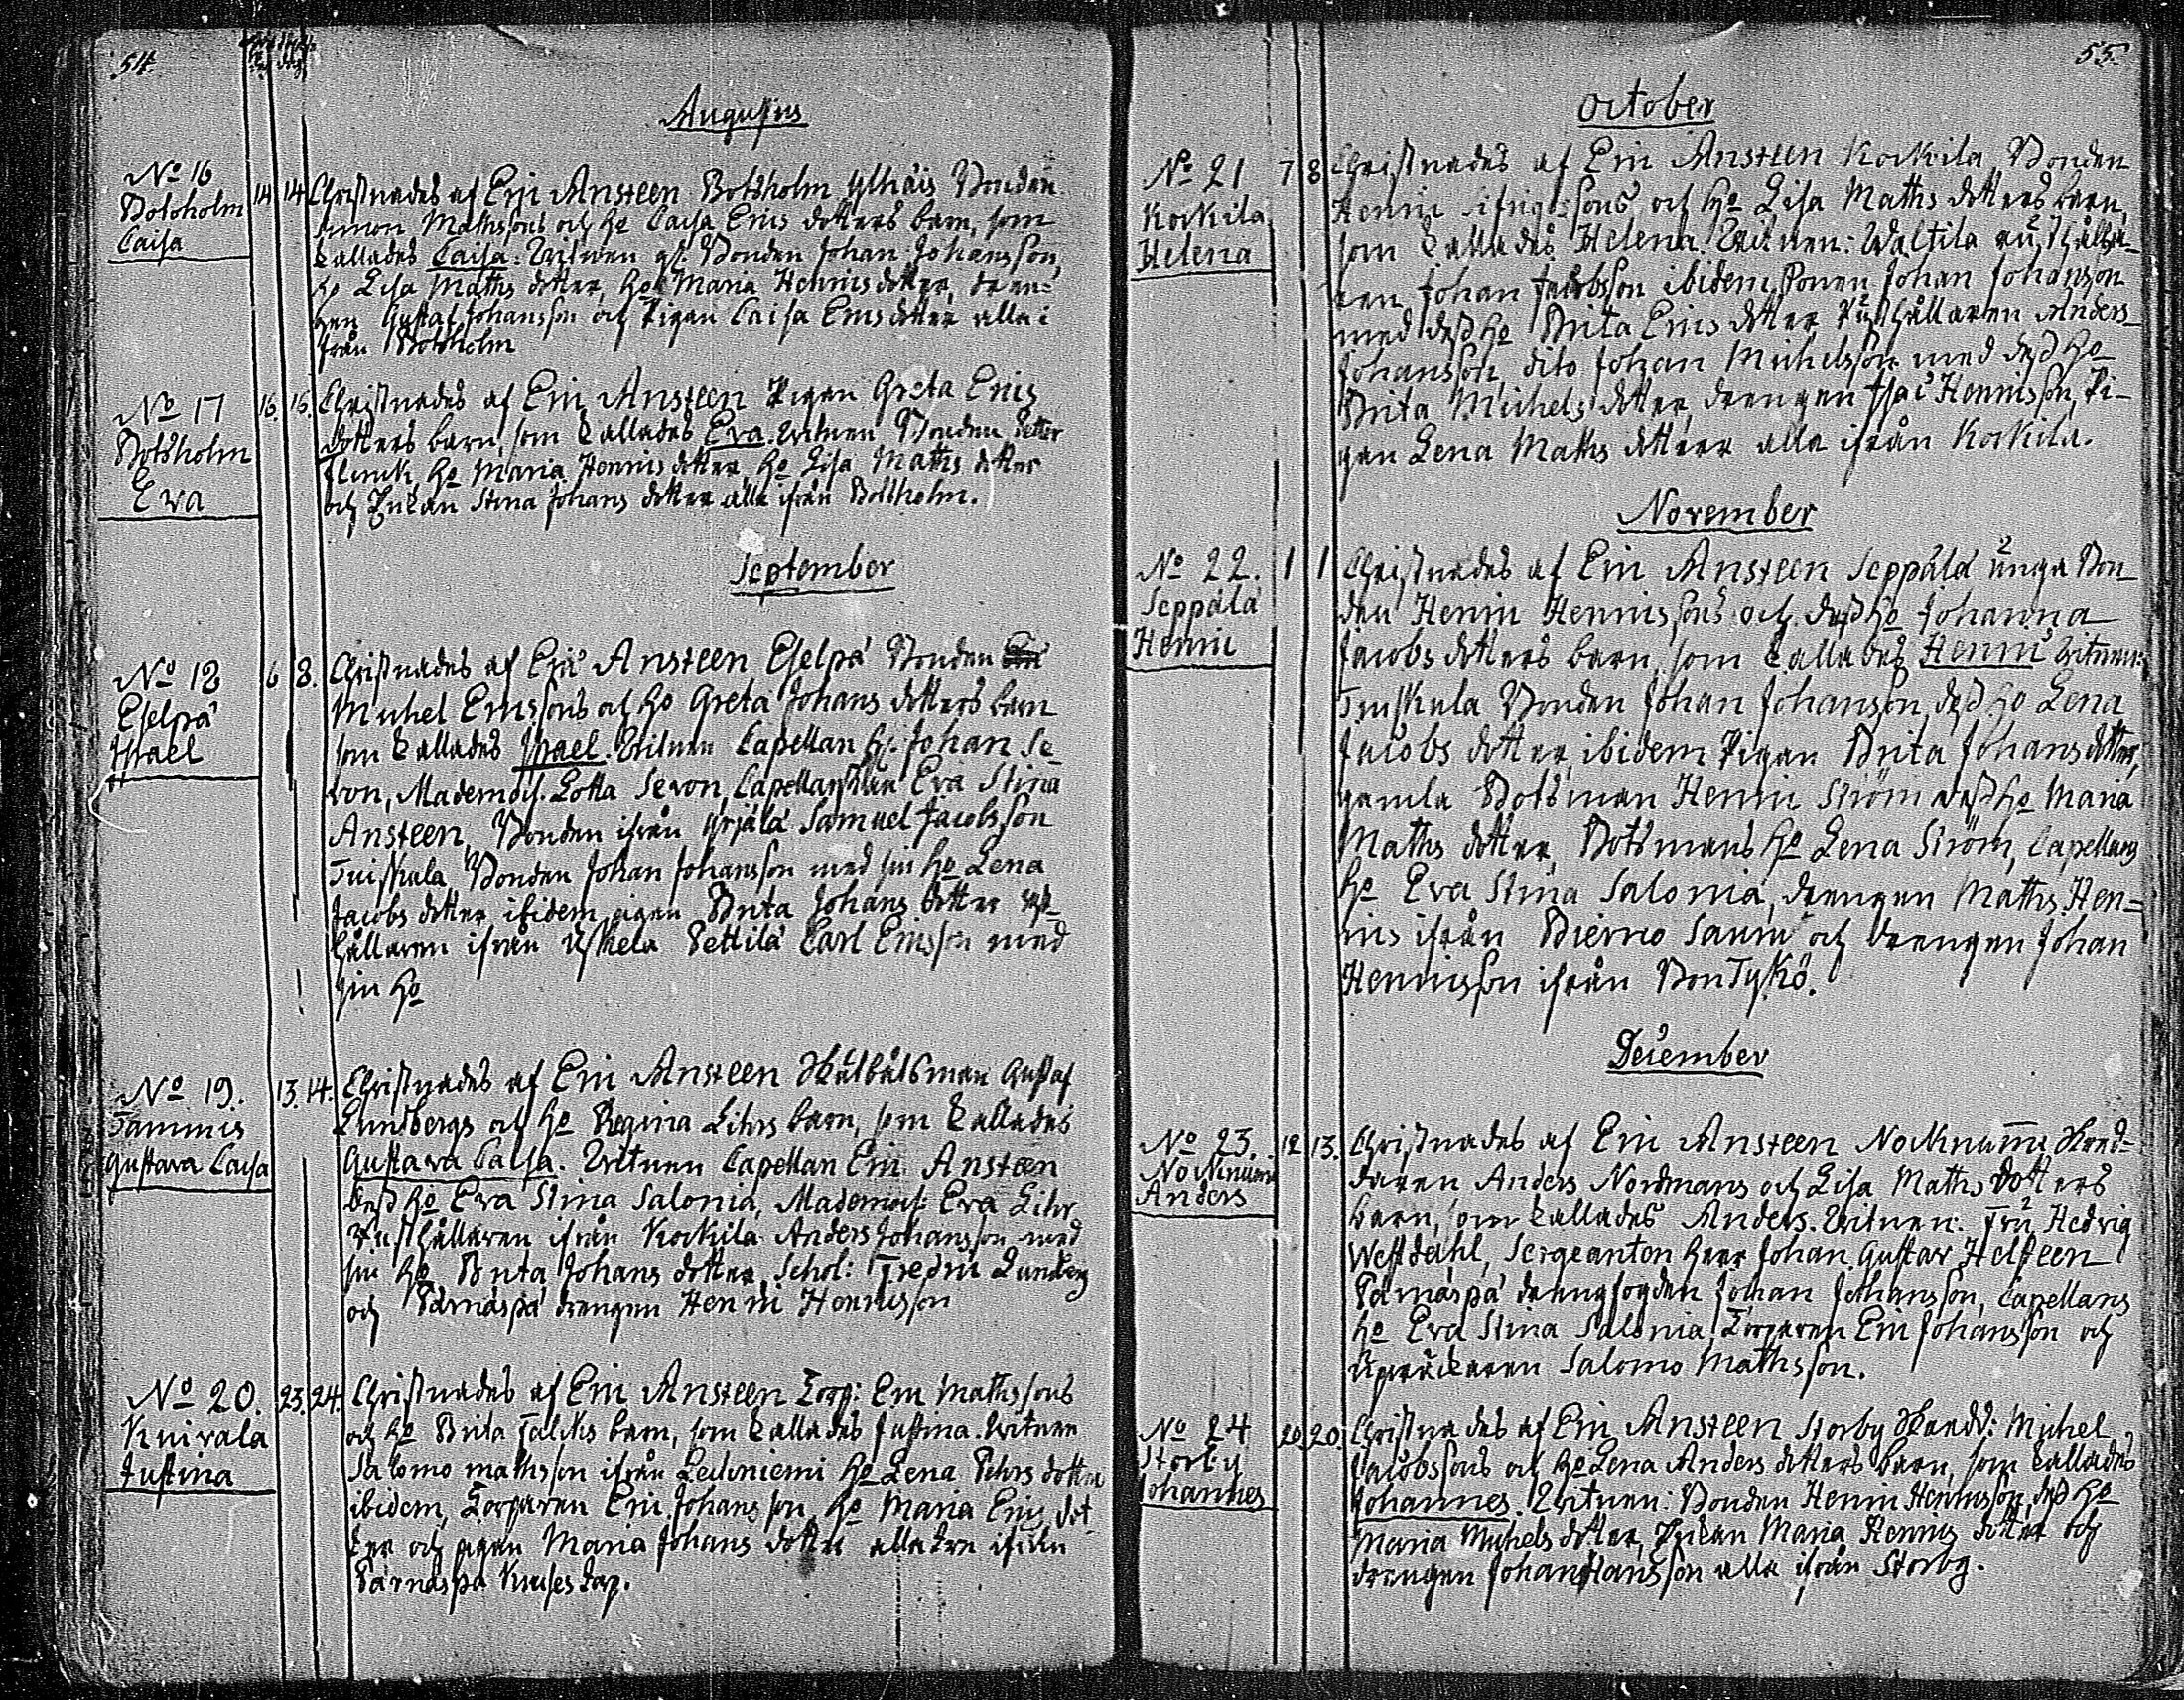 54.
Augustus
No 16
Botsholm
Caisa
14 14 Christnades af Eric Ansteen Botsholm Ylhäis Bonden
Simon Mathssons och Ho Caisa Erics dotters barn, som
kallades Caisa. Witnen gl. Bonden Johan Johansson,
Ho Lisa Maths dotter, Ho Maria Henrics dotter, dren-
gen Gustaf Johansson och Pigan Caisa Erics dotter alla i
från Botsholm
No 17
Botsholm
Eva
15. 15. Christnades af Eric Ansteen Pigan Greta Erics
dotters barn, som kallades Eva. Witnen Bonden Petter
Flinck, Ho Maria Henrics dotter, Ho Lisa Maths dotter
och Enkan Stina Johans dotter alla ifrån Botsholm.
September
No 18
Eselpä
Israel
6 8. Christnades af Eric Ansteen Eselpä Bonden
Michel Ericssons och Ho Greta Johans dotters barn
som kallades Israel. Witnen Capellan Hr. Johan Se-
von, Mademois. Lotta Sevon, Capellanskan Eva Stina
Ansteen, Bonden ifrån Yrjälä Samuel Jacobsson
Tuiskula Bonden Johan Johansson med sin Ho Lena
Jacobs dotter ibidem, pigan Brita Johans dotter Rust-
hållaren ifrån Uskela Pettilä Carl Ericsson med
sin Ho
No 19.
Tammis
Gustava Caisa
13. 14. Christnades af Eric Ansteen Gustaf
Lundbergs och Ho Regina Lihrs barn, som kallades
Gustava Caisa. Witnen Capellan Eric Ansteen
dess Ho Eva Stina Salonia, Mademois: Eva Lihr
Rusthållaren ifrån Korkila Anders Johansson med
sin Ho Brita Johans dotter, Schol: Fredric Lundberg
och Pärnäspä drengen Henric Henricsson
No 20.
Knivala
Justina
23. 24. Christnades af Eric Ansteen Torp: Eric Mathssons
och Ho Brita Falcks barn, som kallades Justina. Witnen
Salomo Mathsson ifrån Lechniemi Ho Lena Pehrs dotter
ibidem, Torparen Eric Johansson, Ho Maria Erics dot-
ter och pigan Maria Johans dotter alla tre ifrån
Pärnäspä torp.
55.
October
No 21
Korkila
Helena
7 8 Christnades af Eric Ansteen Korkila Bonden
Henric Sifrigssons och Ho Lisa Maths dotters barn,
som kallades Helena. Witnen: Waltila Rusthålla-
ren Johan Jacobsson ibidem, Sonen Johan Johansson
med dess Ho Brita Erics dotter Rusthållaren Anders
Johansson, dito Johan Michelsson med dess Ho
Brita Michels dotter, drengen Isac Henricsson, Pi-
gan Lena Maths dotter alla ifrån Korkila.
November
No 22.
Seppälä
Henric
1 1 Christnades af Eric Ansteen Seppälä unga Bon
den Henric Henricssons och dess Ho Johanna
Jacobs dotters barn, som kallades Henric Witnen:
Tuiskula Bonden Johan Johansson, dess Ho Lena
Jacobs dotter, ibidem Pigan Brita Johans dotter,
gamla Botsman Henric Ström dess Ho Maria
Maths dotter, Botsmans Ho Lena Ström, Capellans
Ho Eva Stina Salonia, drengen Maths Hen-
rics ifrån Bierno Sauru och drengen Johan
Henricsson ifrån Bontykö.
December
No 23.
Nocknumi
Anders
12 13. Christnades af Eric Ansteen Nocknummi
Anders Nordmans och Lisa Maths dotters
barn, som kallades Anders. Witnen: Fru Hedvig
Westdahl, Sergeanten herr Johan Gustav Helsteen
Pärnäspä drengfogden Johan Johansson, Capellans
Ho Eva Stina Salonia, Torparen Eric Johansson och
Salomo Mathsson.
No 24
Storby
Johannes
20 20. Christnades af Eric Ansteen Storby Michel
Jacobssons och Ho Lena Anders dotters barn, som kallades
Johannes. Witnen: Bonden Henric Henricsson, dess Ho
Maria Michels dotter, Enkan Maria Henrics dotter och
drengen Johan Hansson alla ifrån Storby.